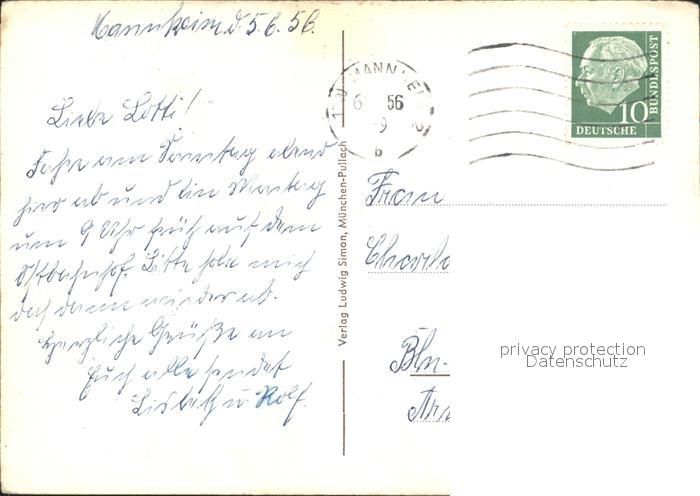 Mannheim d. 5.6.56.
Liebe Lotti!
Fahre am Sonntag abend
hier ab und bin Montag
um 9 Uhr früh auf dem
Ostbahnhof. Bitte hole mich
doch dann wieder ab.
Herzliche Grüße an
Euch alle sendet
Lisbeth u. Rolf.
Verlag Ludwig Simon, München-Pullach
MANNHEIM 2
56
b
10
DEUTSCHE
BUNDESPOST
Frau
Bln-
privacy protection
Datenschutz